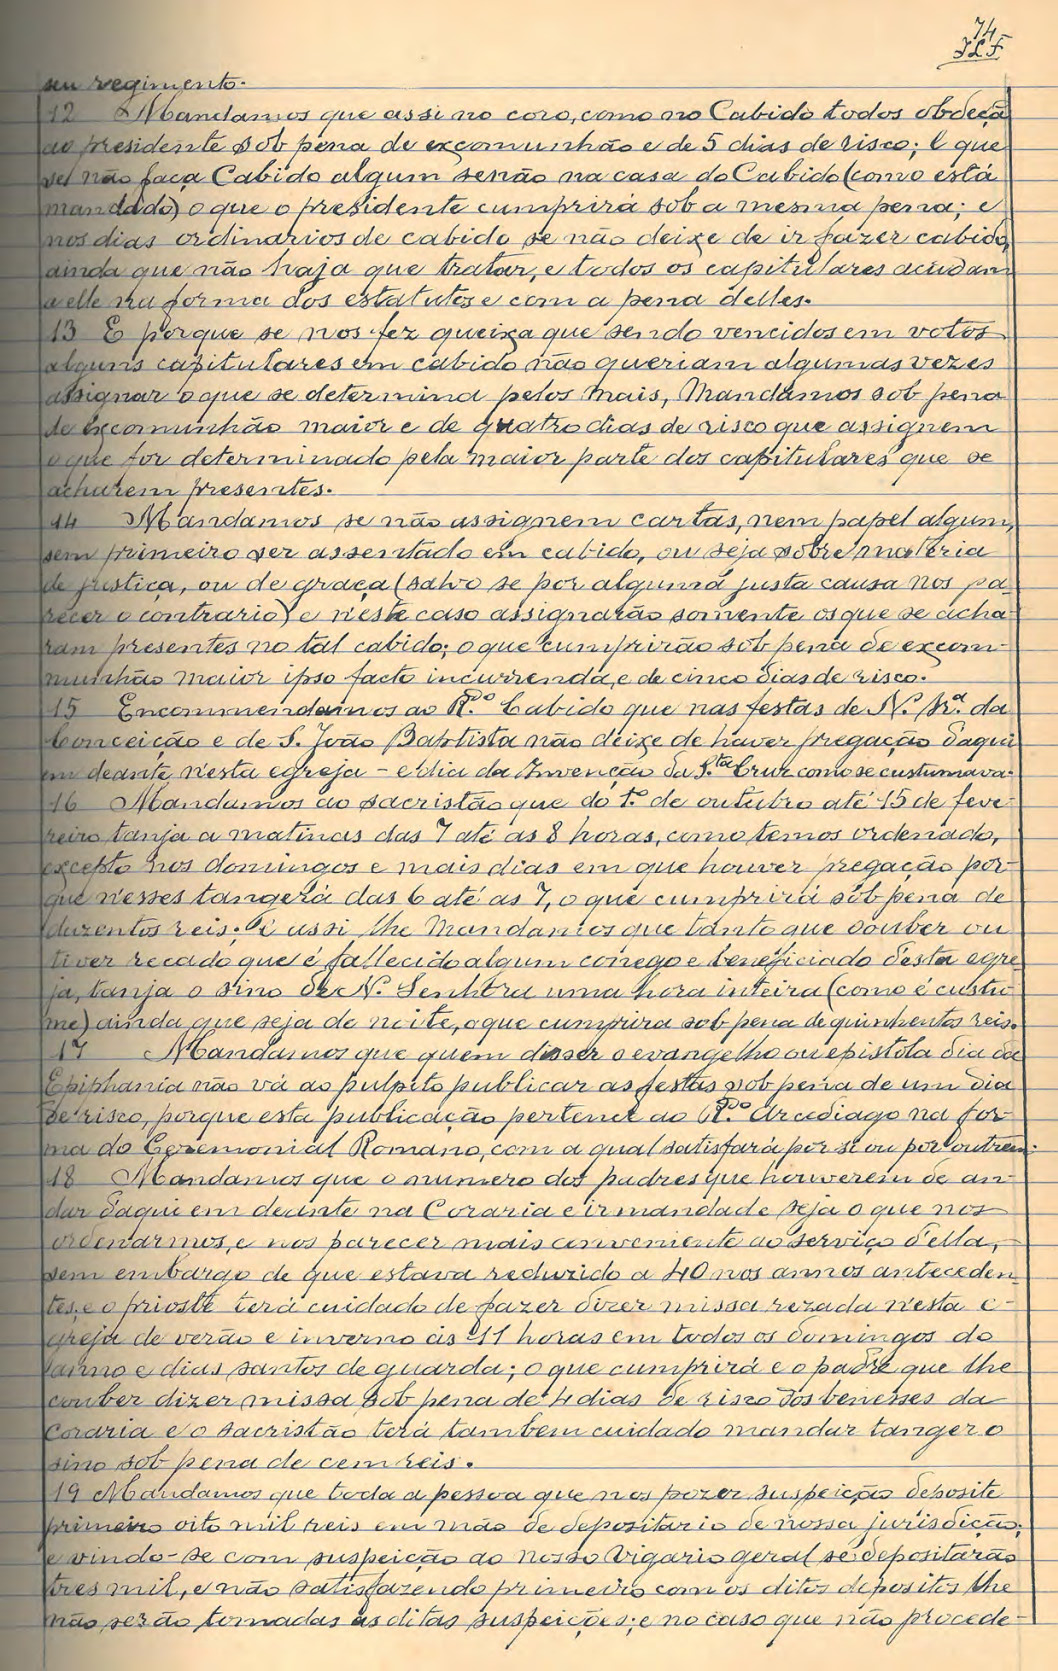 74
JLF
seu regimento.
12 Mandamos que assi no coro, como no Cabido todos obdeçã
ao presidente sob pena de exçomunhão e de 5 dias de risco; e que
se não faça Cabido algum senão na casa do Cabido (como está
mandado) o que o presidente cumprirá sob a mesma pena; e
nos dias ordinarios de cabido se não deixe de ir fazer cabido,
ainda que não haja que tratar, e todos os capitulares acudam
a elle na forma dos estatutos e com a pena delles.
13 E porque se nos fez queixa que sendo vencidos em votos
alguns capitulares em cabido não queriam algumas vezes
assignar o que se determina pelos mais, Mandamos sob pena
de excomunhão maior e de quatro dias de risco que assignem
o que for determinado pela maior parte dos capitulares que se
acharem presentes.
14 Mandamos se não assignem cartas, nem papel algum,
sem primeiro ser assentado em cabido, ou seja sobre materia
de justiça, ou de graça (salvo se por alguma justa causa nos pa-
recer o contrario) e n'este caso assignarão somente os que se acha-
ram presentes no tal cabido; o que cumprirão sob pena de excom-
munhão maior ipso facto incurrenda, e de cinco dias de risco.
15 Encommendamos ao R.do Cabido que nas festas de N. Sr.a da
Conceição e de S. João Baptista não deixe de haver pregação daqui
em deante n'esta egreja - e dia da Invenção da S.ta Cruz como se custumava.
16 Mandamos ao sacristão que do 1.º de outubro até 15 de feve-
reiro tanja a matinas das 7 até as 8 horas, como temos ordenado,
excepto nos domingos e mais dias em que houver pregação por-
que n'esses tangerá das 6 até as 7, o que cumprirá sob pena de
duzentos reis; e assi lhe Mandamos que tanto que souber ou
tiver recado que é fallecido algum conego e beneficiado desta egre-
ja, tanja o sino de N. Senhora uma hora inteira (como é custu-
me) ainda que seja de noite, o que cumprira sob pena de quinhentos reis.
17 Mandamos que quem disser o evangelho ou epistola dia da
Epiphania não vá ao pulpito publicar as festas sob pena de um dia
de risco, porque esta publicação pertence ao R.do Arcediago na for-
ma do Ceremonial Romano, com a qual satisfará por si ou por outrem.
18 Mandamos que o numero dos padres que houverem de an-
dar daqui em deante na Coraria e irmandade seja o que nos
ordenarmos, e nos parecer mais conveniente ao serviço d'ella,
sem embargo de que estava reduzido a 40 nos annos anteceden-
tes; e o prioste terá cuidado de fazer dizer missa rezada n'esta e-
greja de verão e inverno ás 11 horas em todos os domingos do
anno e dias santos de guarda; o que cumprirá e o padre que lhe
couber dizer missa sob pena de 4 dias de risco dos benesses da
Coraria e o sacristão terá tambem cuidado mandar tanger o
sino sob pena de cem reis.
19 Mandamos que toda a pessoa que nos pozer suspeição deposite
primeiro oito mil reis em mão de depositario de nossa jurisdição;
e vindo-se com suspeição ao nosso Vigario geral se depositarão
tres mil, e não satisfazendo primeiro com os ditos depositos lhe
não serão tomadas as ditas suspeições; e no caso que não procede-